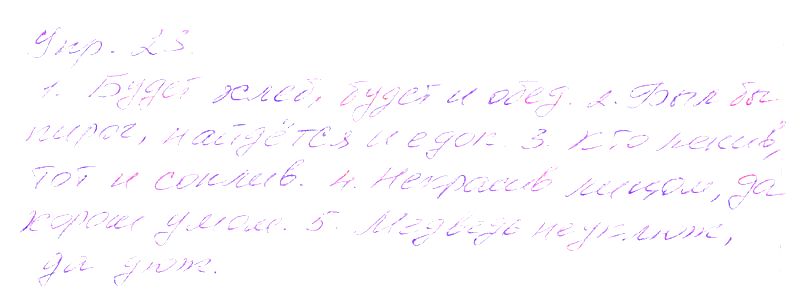 Упр. 23.
1. Будет хлеб, будет и обед. 2. Был бы
пирог, найдётся и едок. 3. Кто ленив,
тот и сонлив. 4. Некрасив лицом, да
хорош умом. 5. Медведь неуклюж,
да дюж.